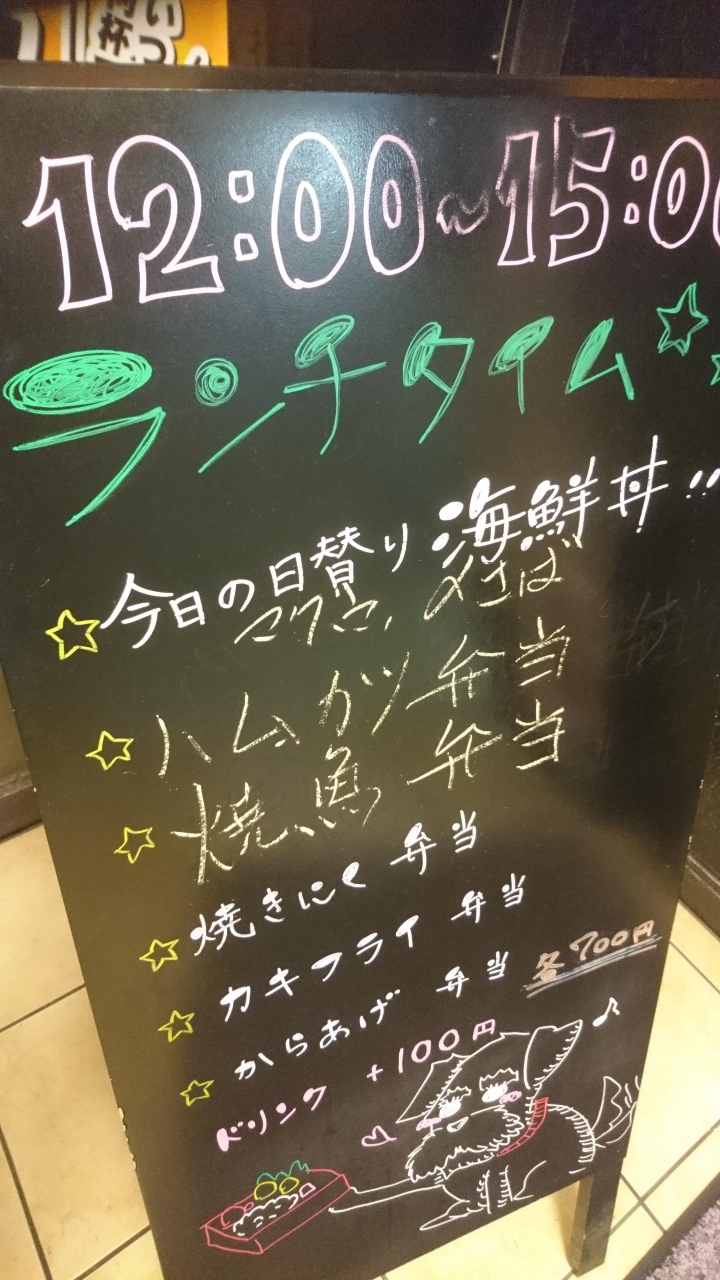 12:00~15:00
ランチタイム
今日の日替り 海鮮丼!!
ハムカツ弁当
焼魚弁当
焼きにく弁当
カキフライ 弁当
からあげ 弁当 各700円
ドリンク +100円